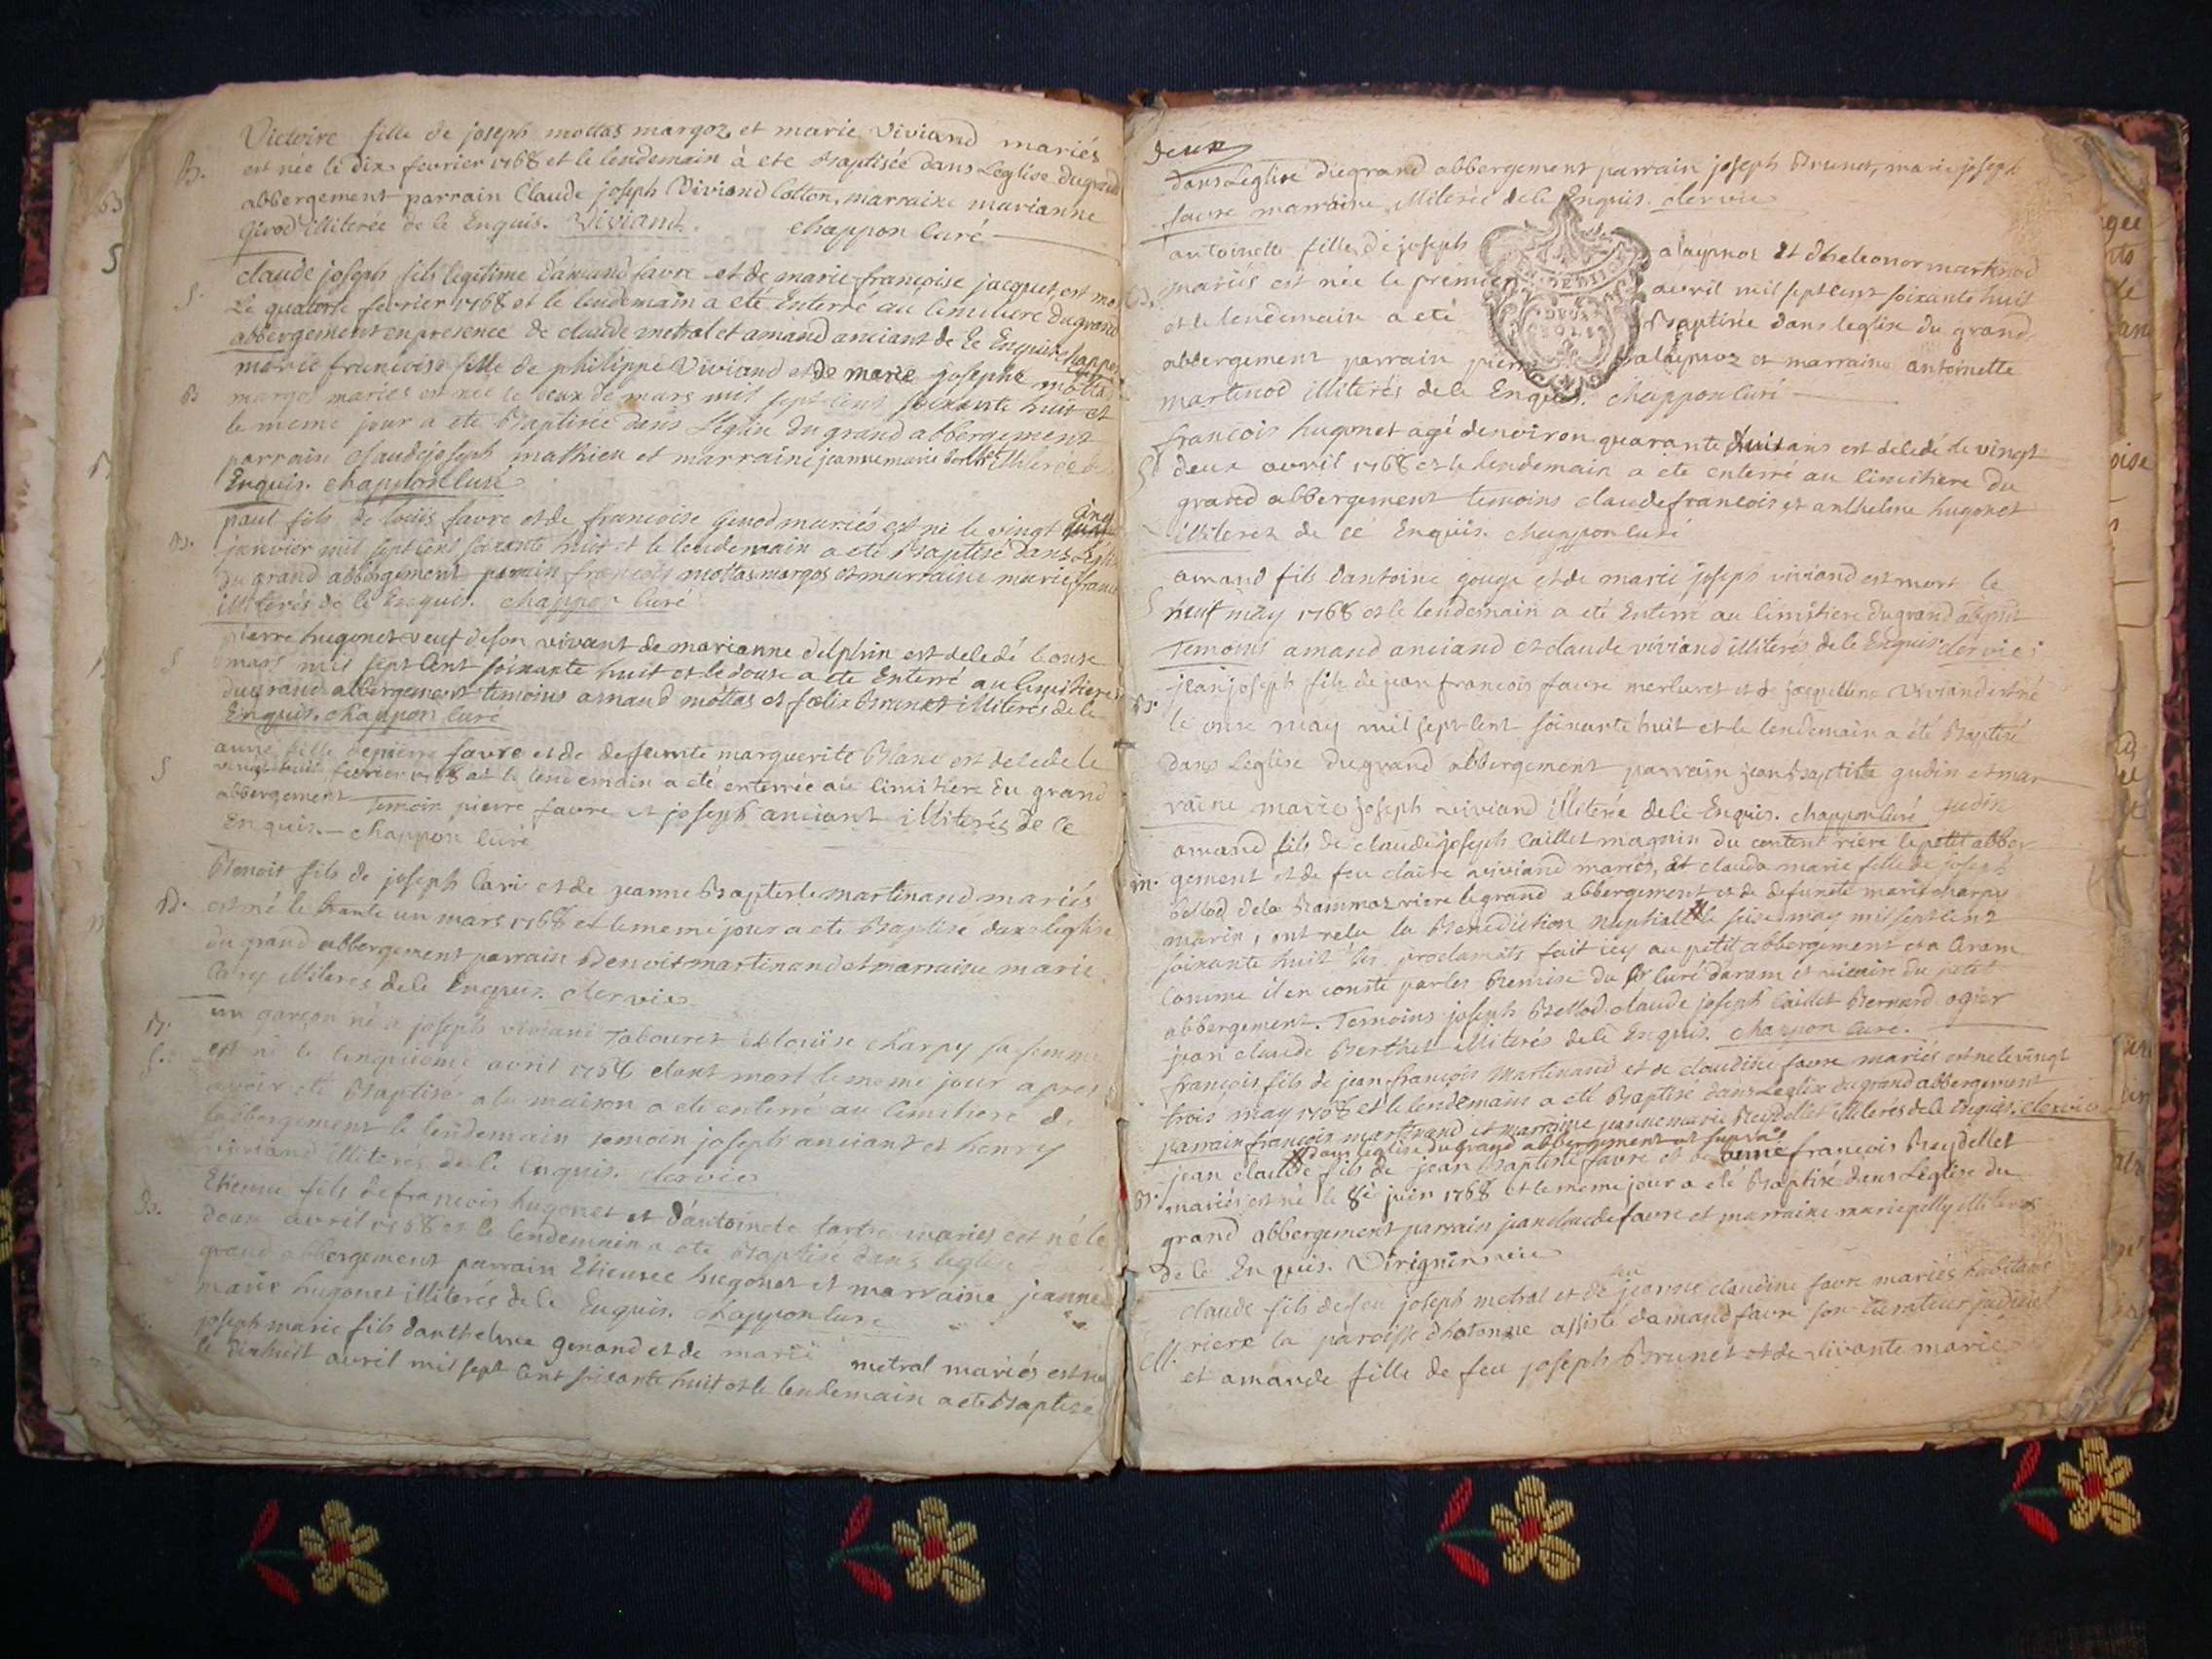 Victoire fille de joseph mottas margoz et marie Viviand mariés
B. est née le dix fevrier 1768 et le lendemain à ete Baptisée dans Leglise du grand
abbergement parrain Claude joseph Viviand Colton, marraine marianne
Girod illiterée de ce Enquis. Viviand. chappon Curé
S. claude joseph fils legitime damand favre et de marie françoise jacquet, est mo
Le quatorse fevrier 1768 et le lendemain a eté Enterré au Cimitiere du grand
abbergement en presence de claude metral et amand anciant de Ce Enquis chappon
marie francoise fille de philippe Viviand et de marie josephe mottas
B margos mariés est née le deux de mars mil sept cent soixante huit et
le meme jour a ete Baptisée dans Leglise du grand abbergement
parrain claude joseph mathieu et marraine jeanne marie illiterée de
Enquis. chappon Curé
paul fils de loüis favre et de francoise Genod mariés est né le vingt cinq
B. janvier mil sept cent soixante huit et le lendemain a eté Baptisé dans Leglise
du grand abbergement parrain françois mottas margos et marraine marie
illiterés de ce Enquis. chappon Curé
pierre hugonet veuf de son vivant de marianne delphin est decedé le onse
S mars mil sept cent soixante huit et le douse a ete Enterré au Cimitiere
du grand abbergement temoins amand mottas et felix Brunet illiterés de ce
Enquis. chappon Curé
anne fille de pierre favre et de defunte marguerite Blanc est decedé le
S vingt huit fevrier 1768 et le lendemain a eté enterrée au Cimitiere du grand
abbergement Temoin pierre favre et joseph anciant illiterés de ce
Enquis. — chappon Curé
Benoit fils de joseph Cari et de jeanne Baptiste martinand mariés
B. est né le trante un mars 1768 et le meme jour a ete Baptisé dans leglise
du grand abbergement parrain Benoit martinand et marraine marie
Carry illiteres de ce Enquis. clervie
B. un garçon né a joseph viviand Tabouret et loüise charpy sa femme
S. est né le cinquieme avril 1768 etant mort le meme jour apres
avoir eté Baptisé a la maison a eté enterré au Cimitiere de
labbergement le lendemain temoin joseph anciant et henry
viviand illiterés de ce Enquis. clervie
Etienne fils de francois hugonet et d'antoinete mariés est né le
B. deux avril 1768 et le lendemain a eté Baptisé dans leglise
grand abbergement parrain Etienne hugonet et marraine jeanne
marie hugonet illiterés de ce Enquis. chappon Curé
joseph marie fils danthelme genand et de marie metral mariés est né
le dixhuit avril mil sept cent soixante huit et le lendemain a ete Baptisé
deux
dans Leglise du grand abbergement parrain joseph Brunet, marie joseph
favre marraine illiterée de ce Enquis. clervie
antoinette fille de joseph alaypnoz et dheleonor martinod
B. mariés est née le premier avril mil sept cent soixante huit
et le lendemain a eté Baptisée dans leglise du grand
abbergement parrain pierre alaypnoz et marraine antoinette
martinod illiterés de ce Enquis. chappon Curé
françois hugonet agé denviron quarante huit ans est decedé le vingt
S deux avril 1768 et le lendemain a ete enterré au Cimitiere du
grand abbergement temoins claude francois et anthelme hugonet
illiterez de ce Enquis. chappon Curé
amand fils dantoine gouge et de marie joseph viviand est mort le
S neuf may 1768 et le lendemain a eté Enterré au Cimitiere du grand
Temoins amand anciand et claude viviand illiterés de ce Enquis. clervie
jean joseph fils de jean francois favre merluret et de jacqueline Viviand est né
B. le onse may mil sept cent soixante huit et le lendemain a été Baptisé
dans Leglise du grand abbergement parrain jean baptiste gudin et mar
raine marie joseph viviand illiterée de ce Enquis. chappon Curé Gudin
amand fils de claude joseph Caillet magnin du content riere le petit abber
m. gement et de feu claire viviand mariés, et claude marie fille de joseph
bellod de la Rammaz riere le grand abbergement et de defuncte marie charpy
mariés, ont recu la Benediction nuptiale le seise may mil sept cent
soixante huit les proclamats fait icy au petit abbergement et a Aram
Comme il en conste par les Remise du Sr Curé daram et vicaire du petit
abbergement. Temoins joseph Bellod claude joseph Caillet Bernard ogier
jean claude Berthet illiterés de ce Enquis. chappon Curé.
françois fils de jean françois Martinand et de claudine favre mariés est né le vingt
trois may 1768 et le lendemain a eté Baptisé dans Leglise du grand abbergement
parrain françois martinand et marraine jeanne marie Reydellet illiterés de ce Enquis. clervie
dans leglise du grand abbergement
jean claude fils de jean Baptiste favre et de françois Reydellet
B. mariés est né le 8e juin 1768 et le meme jour a eté Baptisé dans Leglise du
grand abbergement parrain jean claude favre et marraine marie pelly illiterés
de ce Enquis. Dirignin vic
claude fils de feu joseph metral et de feu jeanne claudine favre mariés habitans
M. riere la paroisse dhotonne assisté damand favre son curateur judiciel
et amande fille de feu joseph Brunet et de vivante marie